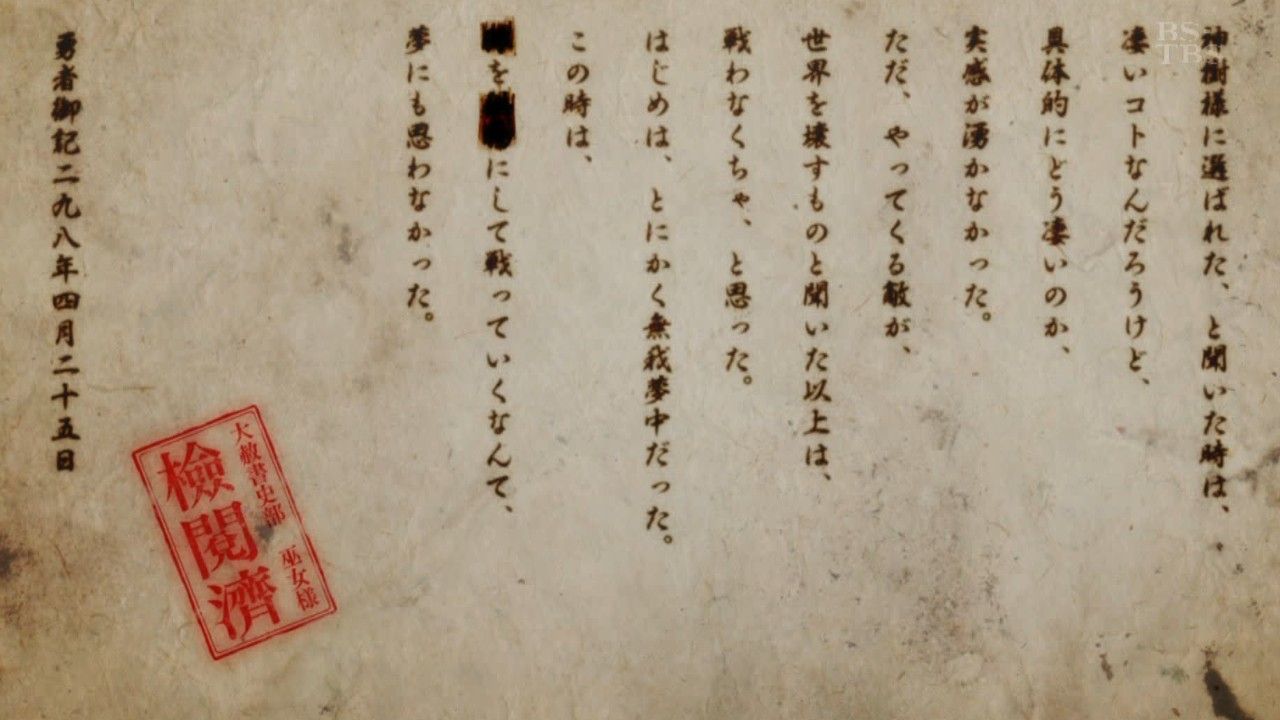 神樹様に選ばれた、と聞いた時は、
凄いコトなんだろうけど、
具体的にどう凄いのか、
実感が湧かなかった。
ただ、やってくる敵が、
世界を壊すものと聞いた以上は、
戦わなくちゃ、と思った。
はじめは、とにかく無我夢中だった。
この時は、
を にして戦っていくなんて、
夢にも思わなかった。
勇者御記二九八年四月二十五日
大赦書史部 巫女様
検閲済
BS
TBS